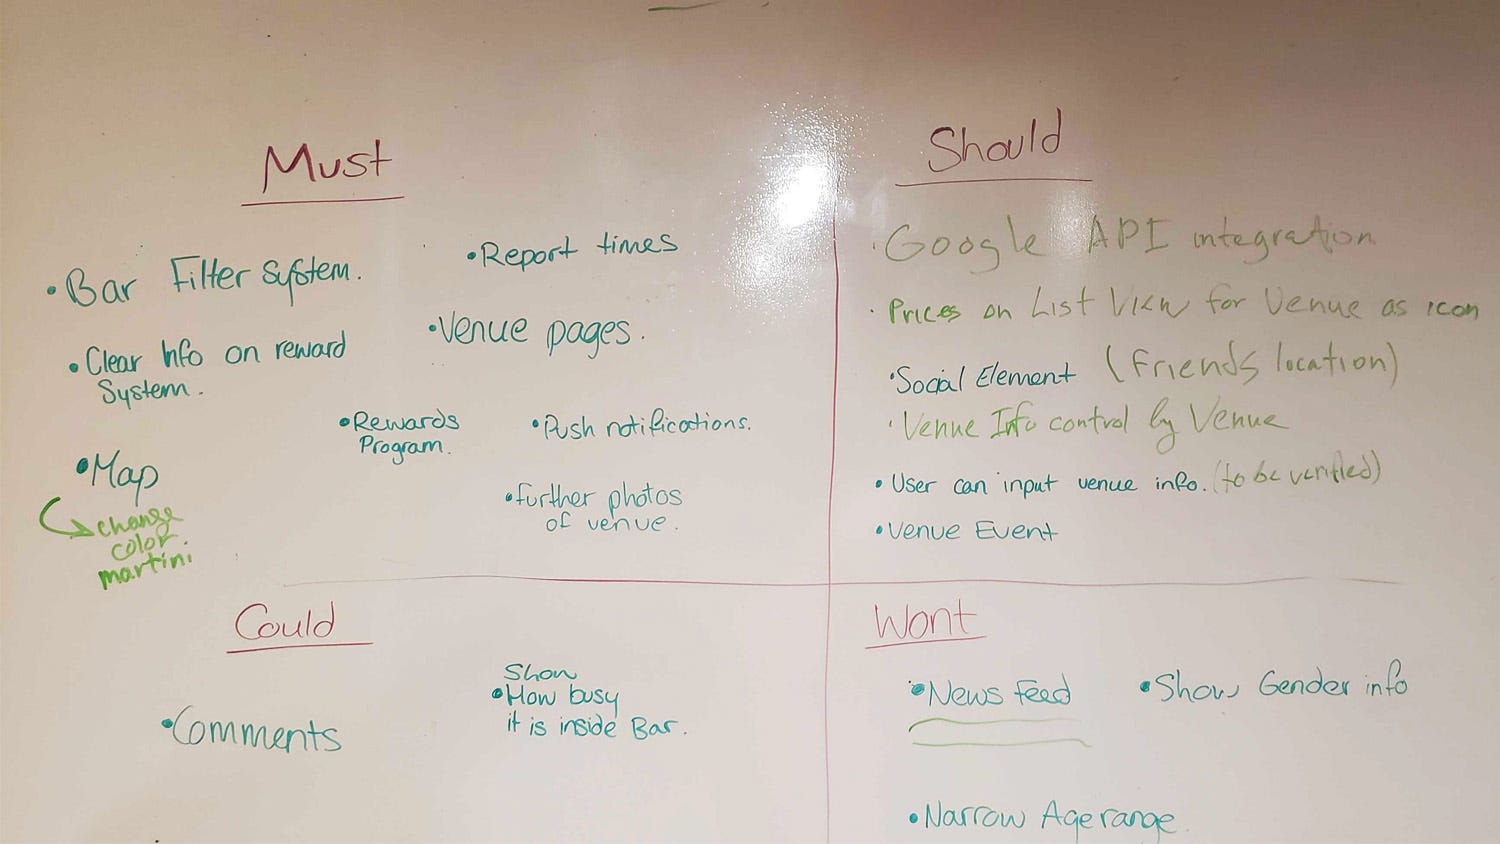 Must
• Bar Filter system.
• Report times
• Clear Info on reward
System.
• Venue pages.
• Rewards
Program.
• Push notifications.
• Map
change
color.
martini
• further photos
of venue.
Should
• Google API integration
• Prices on List View for Venue as icon
• Social Element (Friends location)
• Venue Info control by Venue
• User can input venue info. (to be verified)
• Venue Event
Could
• Comments
Show
• How busy
it is inside Bar.
Wont
• News Feed
• Show Gender info
• Narrow Age range